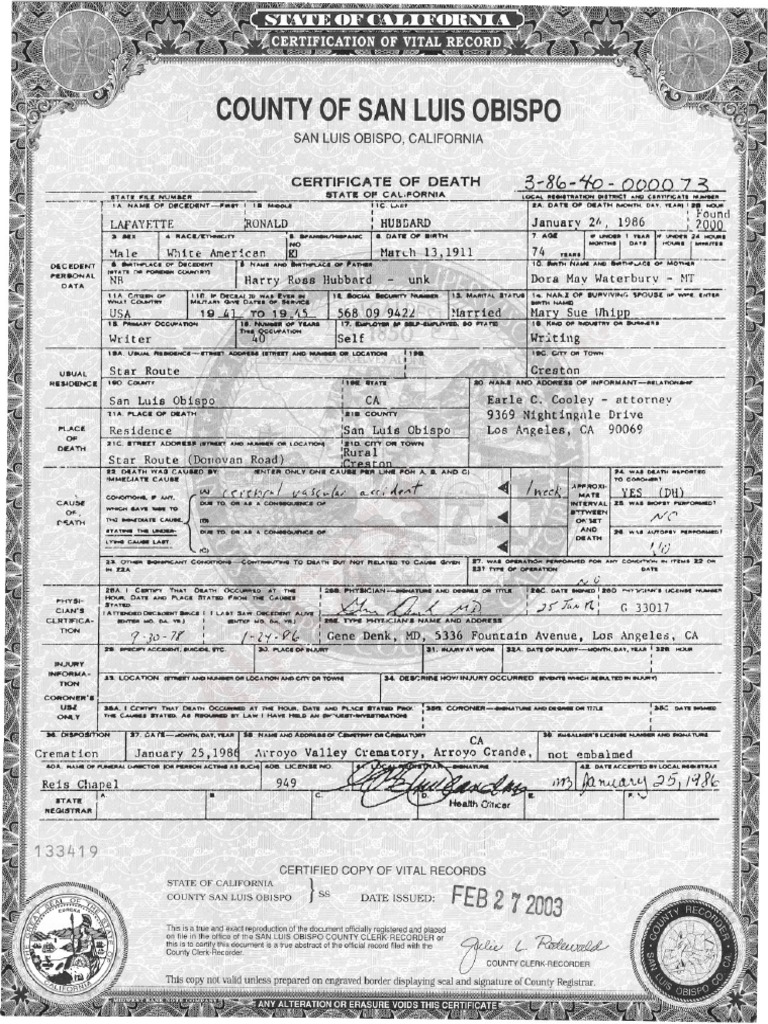 STATE OF CALIFORNIA
CERTIFICATION OF VITAL RECORD
COUNTY OF SAN LUIS OBISPO
SAN LUIS OBISPO, CALIFORNIA
CERTIFICATE OF DEATH 3-86-40-000073
STATE FILE NUMBER STATE OF CALIFORNIA LOCAL REGISTRATION DISTRICT AND CERTIFICATE NUMBER
1A. NAME OF DECEDENT—FIRST 1B. MIDDLE 1C. LAST 2A. DATE OF DEATH (MONTH, DAY, YEAR) 2B. HOUR
LAFAYETTE RONALD HUBBARD January 24, 1986 Found 2000
3. SEX 4. RACE/ETHNICITY 5. SPANISH/HISPANIC 6. DATE OF BIRTH 7. AGE IF UNDER 1 YEAR IF UNDER 24 HOURS
NO MONTHS DAYS HOURS MINUTES
Male White American X March 13,1911 74 YEARS
DECEDENT PERSONAL DATA
8. BIRTHPLACE OF DECEDENT (STATE OR FOREIGN COUNTRY) 9. NAME AND BIRTHPLACE OF FATHER 10. BIRTH NAME AND BIRTHPLACE OF MOTHER
NB Harry Ross Hubbard - unk Dora May Waterbury - MT
11A. CITIZEN OF WHAT COUNTRY 11B. IF DECEASED WAS EVER IN MILITARY GIVE DATES OF SERVICE 12. SOCIAL SECURITY NUMBER 13. MARITAL STATUS 14. NAME OF SURVIVING SPOUSE (IF WIFE, ENTER BIRTH NAME)
USA 19 41 TO 19 45 568 09 9422 Married Mary Sue Whipp
15. PRIMARY OCCUPATION 16. NUMBER OF YEARS THIS OCCUPATION 17. EMPLOYER (IF SELF-EMPLOYED, SO STATE) 18. KIND OF INDUSTRY OR BUSINESS
Writer 40 Self Writing
19A. USUAL RESIDENCE—STREET ADDRESS (STREET AND NUMBER OR LOCATION) 19B. 19C. CITY OR TOWN
Star Route Creston
USUAL RESIDENCE
19D. COUNTY 19E. STATE 20. NAME AND ADDRESS OF INFORMANT—RELATIONSHIP
San Luis Obispo CA Earle C. Cooley - attorney
21A. PLACE OF DEATH 21B. COUNTY 9369 Nightingale Drive
Residence San Luis Obispo Los Angeles, CA 90069
PLACE OF DEATH
21C. STREET ADDRESS (STREET AND NUMBER OR LOCATION) 21D. CITY OR TOWN
Star Route (Donovan Road) Rural Creston
22. DEATH WAS CAUSED BY: (ENTER ONLY ONE CAUSE PER LINE FOR A, B, AND C) 24. WAS DEATH REPORTED TO CORONER?
IMMEDIATE CAUSE
(A) cerebral vascular accident 1 week YES (DH)
CONDITIONS, IF ANY, WHICH GAVE RISE TO THE IMMEDIATE CAUSE, STATING THE UNDERLYING CAUSE LAST.
DUE TO, OR AS A CONSEQUENCE OF
(B)
DUE TO, OR AS A CONSEQUENCE OF
(C)
APPROXIMATE INTERVAL BETWEEN ONSET AND DEATH
25. WAS BIOPSY PERFORMED?
NO
26. WAS AUTOPSY PERFORMED?
NO
CAUSE OF DEATH
23. OTHER SIGNIFICANT CONDITIONS—CONTRIBUTING TO DEATH BUT NOT RELATED TO CAUSE GIVEN IN 22A 27. WAS OPERATION PERFORMED FOR ANY CONDITION IN ITEMS 22 OR 23? TYPE OF OPERATION DATE
NO
PHYSICIAN'S CERTIFICATION
28A. I CERTIFY THAT DEATH OCCURRED AT THE HOUR, DATE AND PLACE STATED FROM THE CAUSES STATED. 28B. PHYSICIAN—SIGNATURE AND DEGREE OR TITLE 28C. DATE SIGNED 28D. PHYSICIAN'S LICENSE NUMBER
Gene Denk MD 25 Jan 86 G 33017
I ATTENDED DECEDENT SINCE I LAST SAW DECEDENT ALIVE
(ENTER MO. DA. YR.) (ENTER MO. DA. YR.) 28E. TYPE PHYSICIAN'S NAME AND ADDRESS
9-30-78 1-24-86 Gene Denk, MD, 5336 Fountain Avenue, Los Angeles, CA
29. SPECIFY ACCIDENT, SUICIDE, ETC. 30. PLACE OF INJURY 31. INJURY AT WORK 32A. DATE OF INJURY—MONTH, DAY, YEAR 32B. HOUR
INJURY INFORMATION
33. LOCATION (STREET AND NUMBER OR LOCATION AND CITY OR TOWN) 34. DESCRIBE HOW INJURY OCCURRED (EVENTS WHICH RESULTED IN INJURY)
CORONER'S USE ONLY
35A. I CERTIFY THAT DEATH OCCURRED AT THE HOUR, DATE AND PLACE STATED FROM THE CAUSES STATED, AS REQUIRED BY LAW I HAVE HELD AN INQUEST-INVESTIGATION 35B. CORONER—SIGNATURE AND DEGREE OR TITLE 35C. DATE SIGNED
36. DISPOSITION 37. DATE—MONTH, DAY, YEAR 38. NAME AND ADDRESS OF CEMETERY OR CREMATORY 39. EMBALMER'S LICENSE NUMBER AND SIGNATURE
Cremation January 25,1986 Arroyo Valley Crematory, Arroyo Grande, CA not embalmed
40A. NAME OF FUNERAL DIRECTOR (OR PERSON ACTING AS SUCH) 40B. LICENSE NO. 41. LOCAL REGISTRAR—SIGNATURE 42. DATE ACCEPTED BY LOCAL REGISTRAR
Reis Chapel 949 January 25, 1986
Health Officer
STATE REGISTRAR A. B. C. D. E. F.
133419
CERTIFIED COPY OF VITAL RECORDS
STATE OF CALIFORNIA
COUNTY SAN LUIS OBISPO } SS DATE ISSUED: FEB 27 2003
This is a true and exact reproduction of the document officially registered and placed
on file in the office of the SAN LUIS OBISPO COUNTY CLERK-RECORDER or
this is to certify this document is a true abstract of the official record filed with the
County Clerk-Recorder.
Julie L Rodewald
COUNTY CLERK-RECORDER
This copy not valid unless prepared on engraved border displaying seal and signature of County Registrar.
MIDWEST BANK NOTE COMPANY
ANY ALTERATION OR ERASURE VOIDS THIS CERTIFICATE
COUNTY RECORDER
SAN LUIS OBISPO CO. CA.